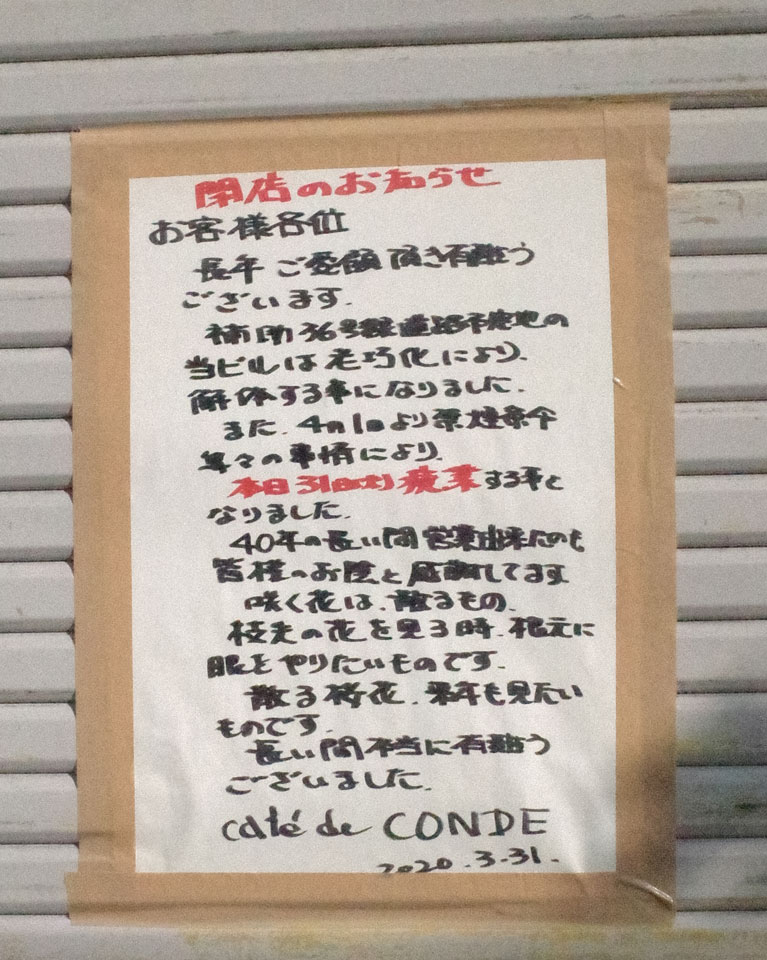 閉店のお知らせ
お客様各位
長年ご愛顧頂き有難う
ございます.
補助36号線道路予定地の
当ビルは老巧化により、
解体する事になりました.
また、4月1日より禁煙条令
等々の事情により、
本日31日(火)廃業する事と
なりました.
40年の長い間営業出来たのも
皆様のお陰と感謝してます
咲く花は、散るもの、
枝先の花を見る時、根元に
眼をやりたいものです.
散る桜花、来年も見たい
ものです.
長い間本当に有難う
ございました.
café de CONDE
2020.3.31.